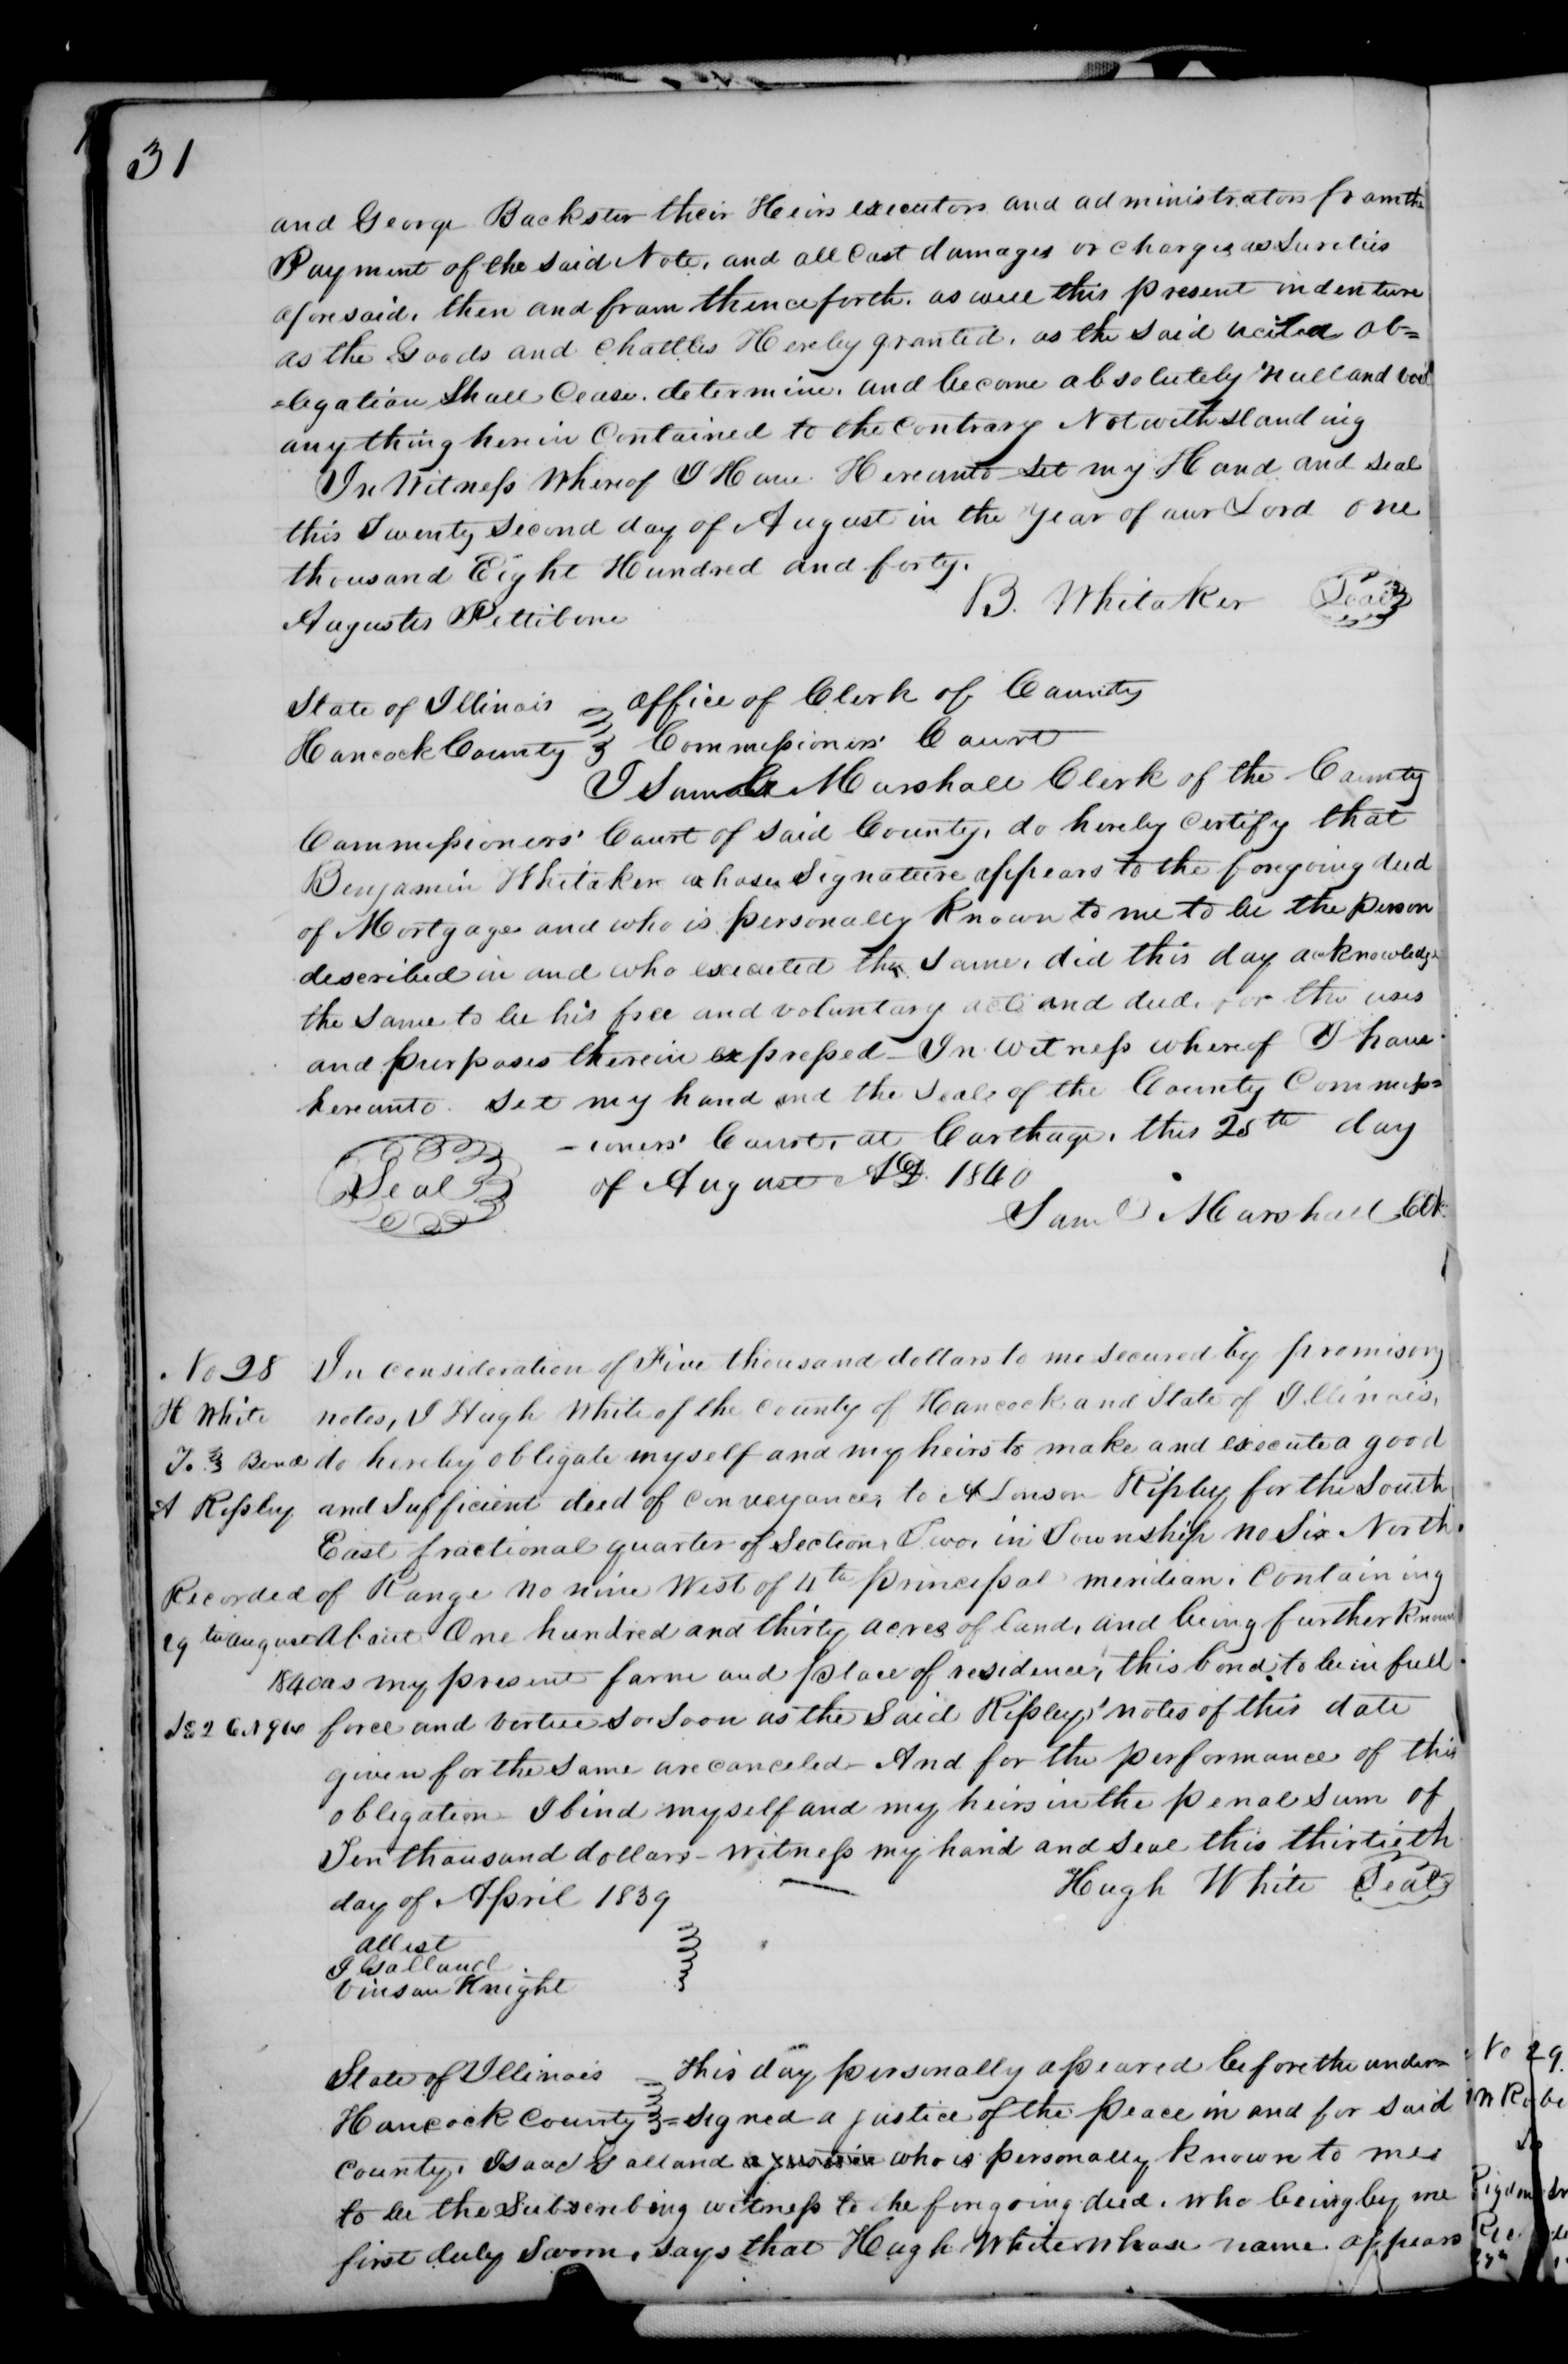 31
and George Backster their Heirs executors and administrators from the
Payment of the said Note, and all Cost damages or charges as Sureties
aforesaid, then and from thenceforth, as well this present indenture
as the Goods and Chattles Hereby granted, as the said recited ob=
=ligation Shall Cease, determine, and become absolutely Null and void
any thing herein Contained to the Contrary Notwithstanding
In Witness Whereof I Have Hereunto Set my Hand and Seal
this Twenty Second day of August in the Year of our Lord one
thousand Eight Hundred and forty.
Augustes Pettibone B. Whitaker Seal
State of Illinois Office of Clerk of County
Hancock County Commissioners' Court
I Saml Marshall Clerk of the County
Commissioners' Court of said County, do hereby Certify that
Benjamin Whitaker whose Signature appears to the foregoing deed
of Mortgage and who is personally Known to me to be the person
described in and who executed the Same, did this day acknowledge
the Same to be his free and voluntary act and deed, for the uses
and purposes therein expressed — In witness whereof I have
hereunto Set my hand and the Seal of the County Commiss=
-ioners' Court, at Carthage, this 28th day
Seal of August AD. 1840
Saml Marshall Clk
No 28 In consideration of Five thousand dollars to me secured by promisory
H White notes, I Hugh White of the county of Hancock and State of Illinois,
To Bond do hereby obligate myself and my heirs to make and execute a good
A Ripley and Sufficient deed of conveyance, to Alonson Ripley for the South
East fractional quarter of Section, Two, in Township no Six North
Recorded of Range no nine West of 4th principal meridian, Containing
29th august About One hundred and thirty acres of land, and being further Known
1840 as my present farm and place of residence, this bond to be in full
Se 2 6N 9W force and vertue so soon as the Said Ripley's notes of this date
given for the same are canceled — And for the performance of this
obligation I bind myself and my heirs in the penal sum of
Ten thousand dollars — witness my hand and Seal this thirtieth
day of April 1839 Hugh White Seal
attest
I Galland
Vinson Knight
State of Illinois This day personally apeared before the under=
Hancock County =signed a justice of the peace in and for said
county, Isaac Galland a justice who is personally known to me
to be the Subscribing witness to the forgoing deed, who being by me
first duly Sworn, says that Hugh White whose name appears
No 29.